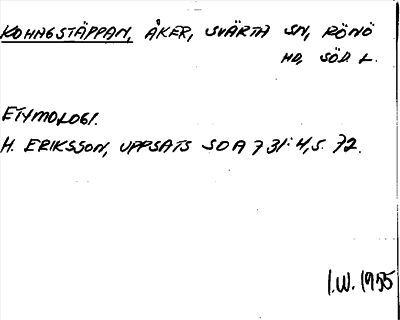 KOHAGSTÄPPAN, ÅKER, SVÄRTA SN, RÖNÖ
HD, SÖD. L.
ETYMOLOGI.
H. ERIKSSON, UPPSATS SOA 731:4, S. 72.
I.W. 1955